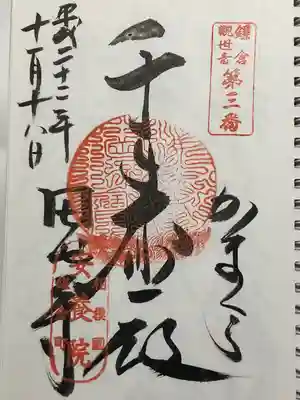 鎌倉
観世音
第三番
かまくら
千手
殿
平成二十二年
十一月十八日
田代寺
安養院